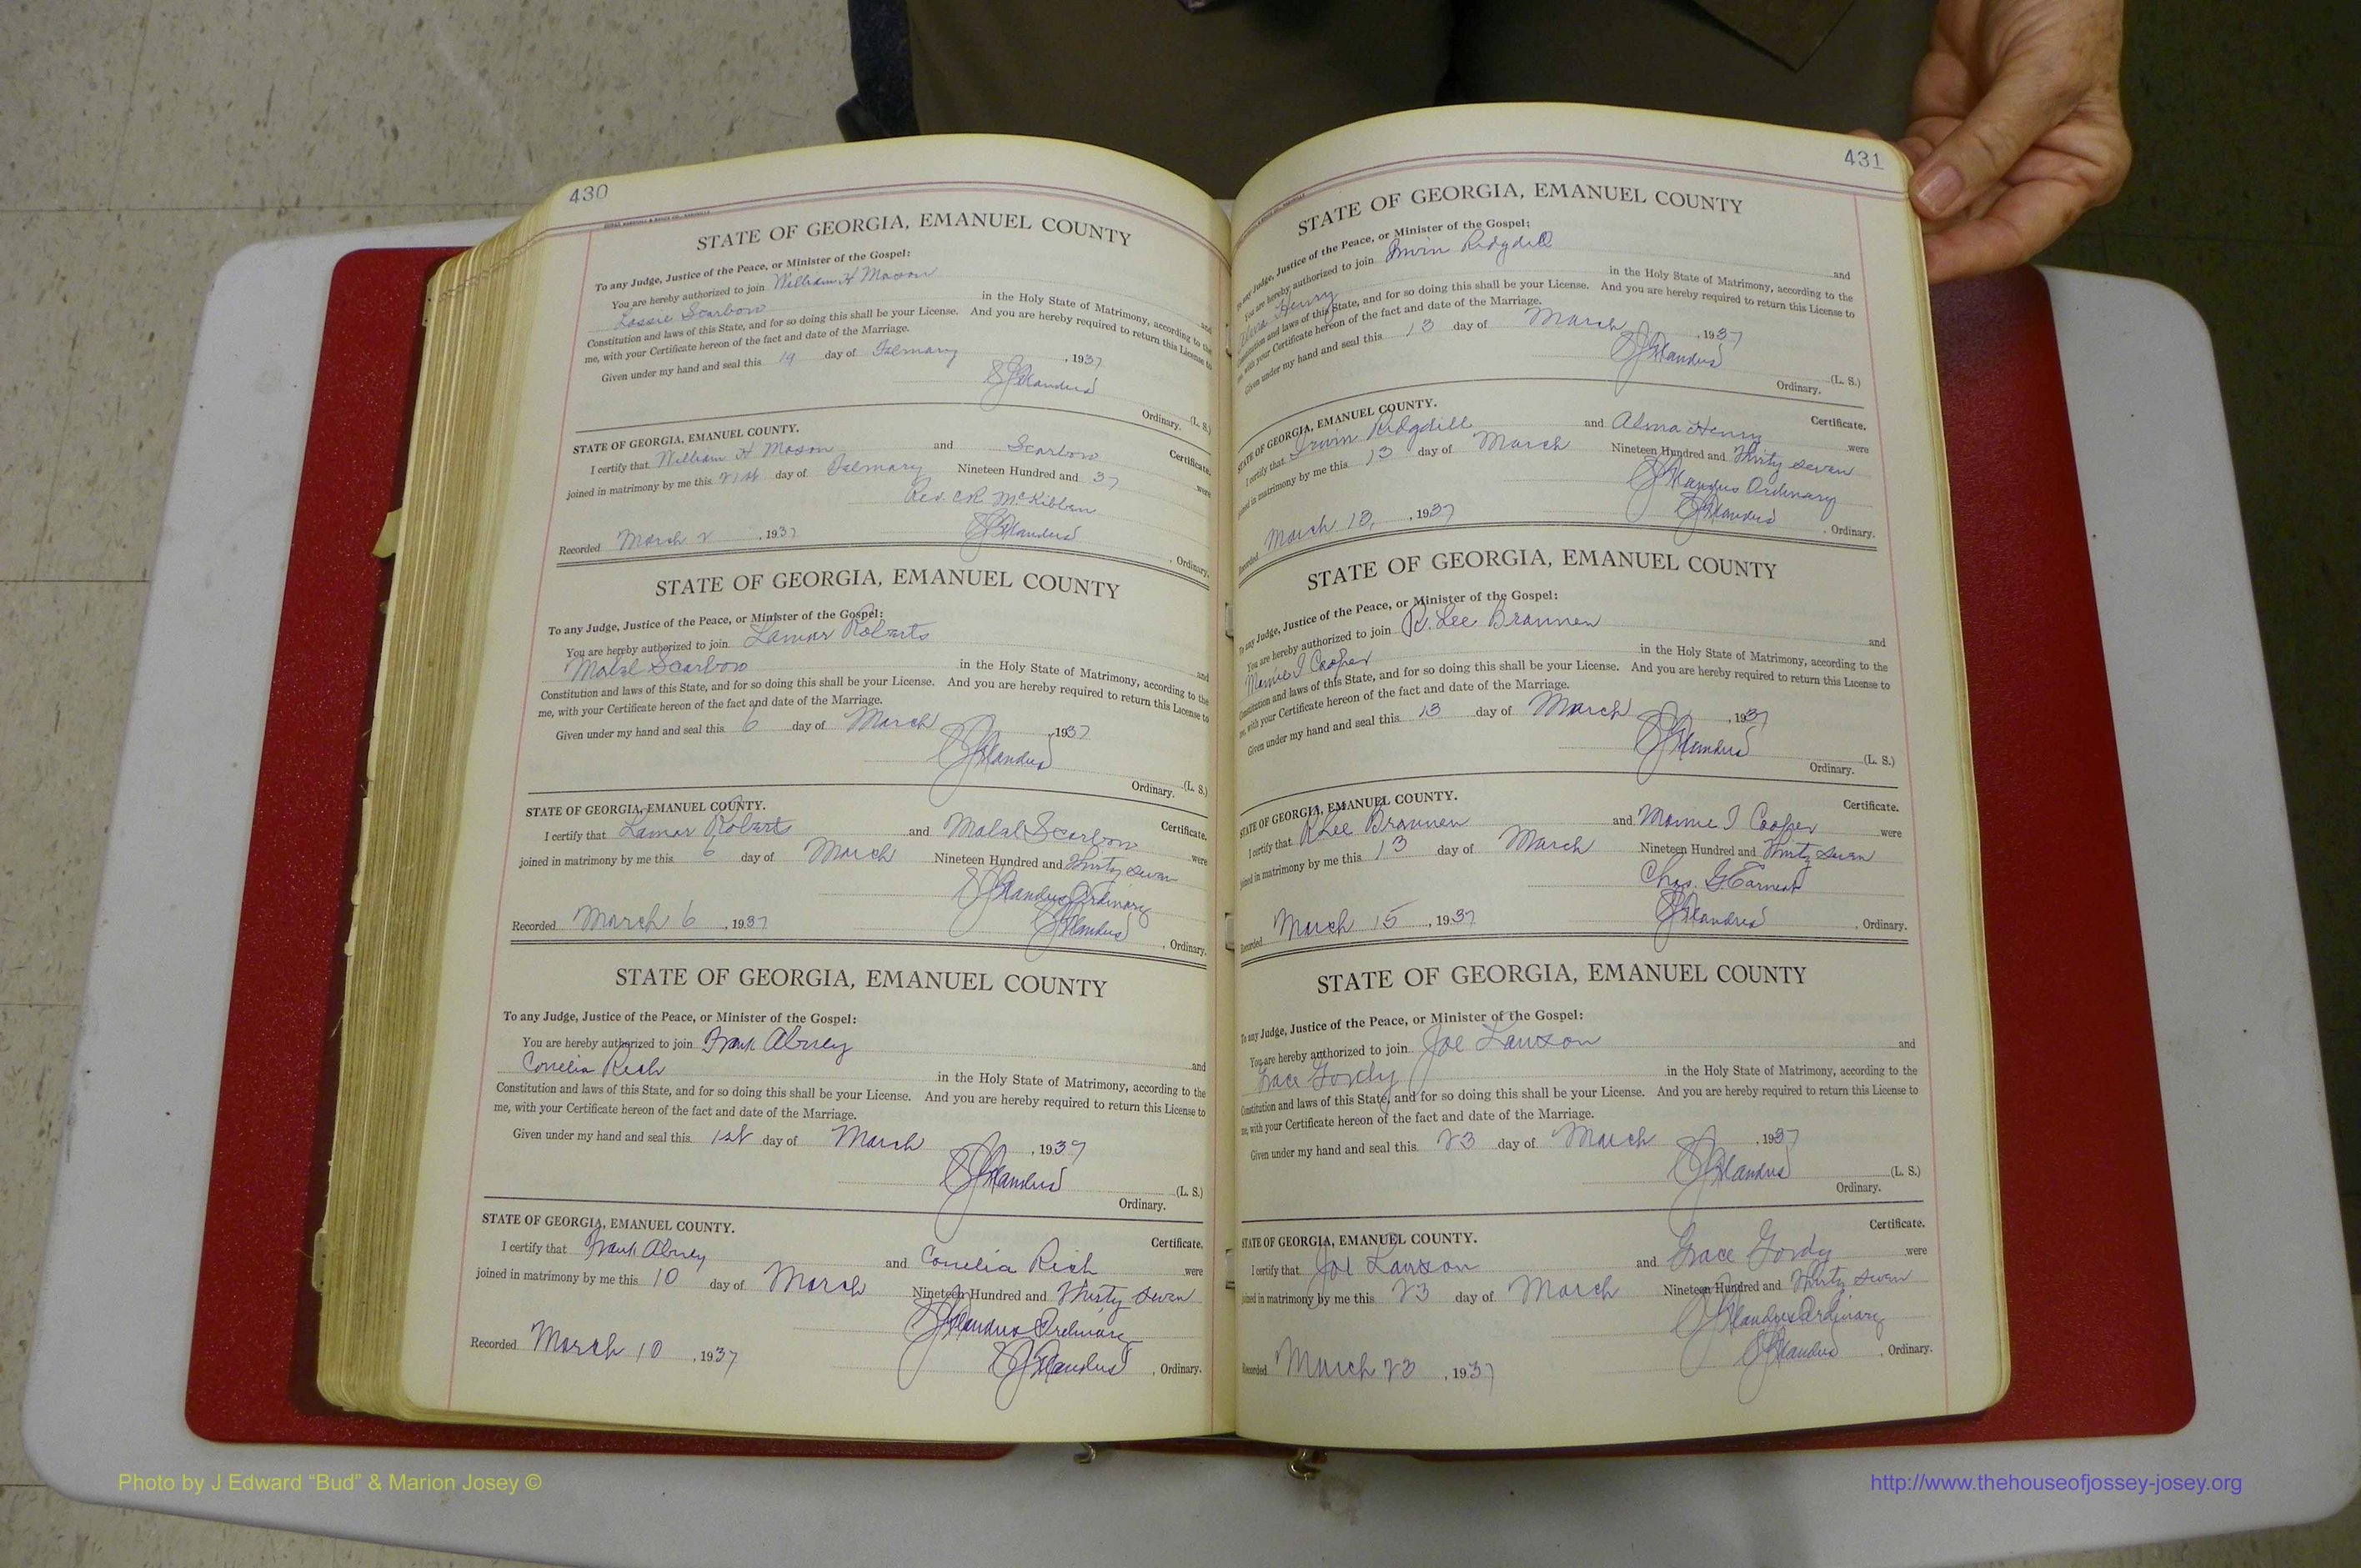 430
STATE OF GEORGIA, EMANUEL COUNTY
To any Judge, Justice of the Peace, or Minister of the Gospel:
You are hereby authorized to join William H Mason and
Lossie Scarboro in the Holy State of Matrimony, according to the
Constitution and laws of this State, and for so doing this shall be your License. And you are hereby required to return this License to
me, with your Certificate hereon of the fact and date of the Marriage.
Given under my hand and seal this 19 day of February, 1937
Ordinary. (L. S.)
STATE OF GEORGIA, EMANUEL COUNTY. Certificate.
I certify that William H Mason and Scarboro were
joined in matrimony by me this 21st day of February Nineteen Hundred and 37
Rev. CR McKibben
Recorded March 2, 1937 , Ordinary.
STATE OF GEORGIA, EMANUEL COUNTY
To any Judge, Justice of the Peace, or Minister of the Gospel:
You are hereby authorized to join Lamar Roberts and
Mabel Scarboro in the Holy State of Matrimony, according to the
Constitution and laws of this State, and for so doing this shall be your License. And you are hereby required to return this License to
me, with your Certificate hereon of the fact and date of the Marriage.
Given under my hand and seal this 6 day of March, 1937
Ordinary. (L. S.)
STATE OF GEORGIA, EMANUEL COUNTY. Certificate.
I certify that Lamar Roberts and Mabel Scarboro were
joined in matrimony by me this 6 day of March Nineteen Hundred and Thirty Seven
Ordinary
Recorded March 6, 1937 , Ordinary.
STATE OF GEORGIA, EMANUEL COUNTY
To any Judge, Justice of the Peace, or Minister of the Gospel:
You are hereby authorized to join Frank Abney and
Cornelia Rich in the Holy State of Matrimony, according to the
Constitution and laws of this State, and for so doing this shall be your License. And you are hereby required to return this License to
me, with your Certificate hereon of the fact and date of the Marriage.
Given under my hand and seal this 1st day of March, 1937
Ordinary. (L. S.)
STATE OF GEORGIA, EMANUEL COUNTY. Certificate.
I certify that Frank Abney and Cornelia Rich were
joined in matrimony by me this 10 day of March Nineteen Hundred and Thirty Seven
Ordinary
Recorded March 10, 1937 , Ordinary.
431
STATE OF GEORGIA, EMANUEL COUNTY
To any Judge, Justice of the Peace, or Minister of the Gospel:
You are hereby authorized to join Irwin Ridgdill and
Alma Henry in the Holy State of Matrimony, according to the
Constitution and laws of this State, and for so doing this shall be your License. And you are hereby required to return this License to
me, with your Certificate hereon of the fact and date of the Marriage.
Given under my hand and seal this 13 day of March, 1937
Ordinary. (L. S.)
STATE OF GEORGIA, EMANUEL COUNTY. Certificate.
I certify that Irwin Ridgdill and Alma Henry were
joined in matrimony by me this 13 day of March Nineteen Hundred and Thirty Seven
Ordinary
Recorded March 13, , 1937 , Ordinary.
STATE OF GEORGIA, EMANUEL COUNTY
To any Judge, Justice of the Peace, or Minister of the Gospel:
You are hereby authorized to join R. Lee Brannen and
Mamie I Cooper in the Holy State of Matrimony, according to the
Constitution and laws of this State, and for so doing this shall be your License. And you are hereby required to return this License to
me, with your Certificate hereon of the fact and date of the Marriage.
Given under my hand and seal this 13 day of March, 1937
Ordinary. (L. S.)
STATE OF GEORGIA, EMANUEL COUNTY. Certificate.
I certify that R Lee Brannen and Mamie I Cooper were
joined in matrimony by me this 13 day of March Nineteen Hundred and Thirty Seven
Chas. G. Earnest
Recorded March 15, 1937 , Ordinary.
STATE OF GEORGIA, EMANUEL COUNTY
To any Judge, Justice of the Peace, or Minister of the Gospel:
You are hereby authorized to join Joe Lawson and
Grace Gordy in the Holy State of Matrimony, according to the
Constitution and laws of this State, and for so doing this shall be your License. And you are hereby required to return this License to
me, with your Certificate hereon of the fact and date of the Marriage.
Given under my hand and seal this 23 day of March, 1937
Ordinary. (L. S.)
STATE OF GEORGIA, EMANUEL COUNTY. Certificate.
I certify that Joe Lawson and Grace Gordy were
joined in matrimony by me this 23 day of March Nineteen Hundred and Thirty Seven
Ordinary
Recorded March 23, 1937 , Ordinary.
Photo by J Edward “Bud” & Marion Josey ©
http://www.thehouseofjossey-josey.org